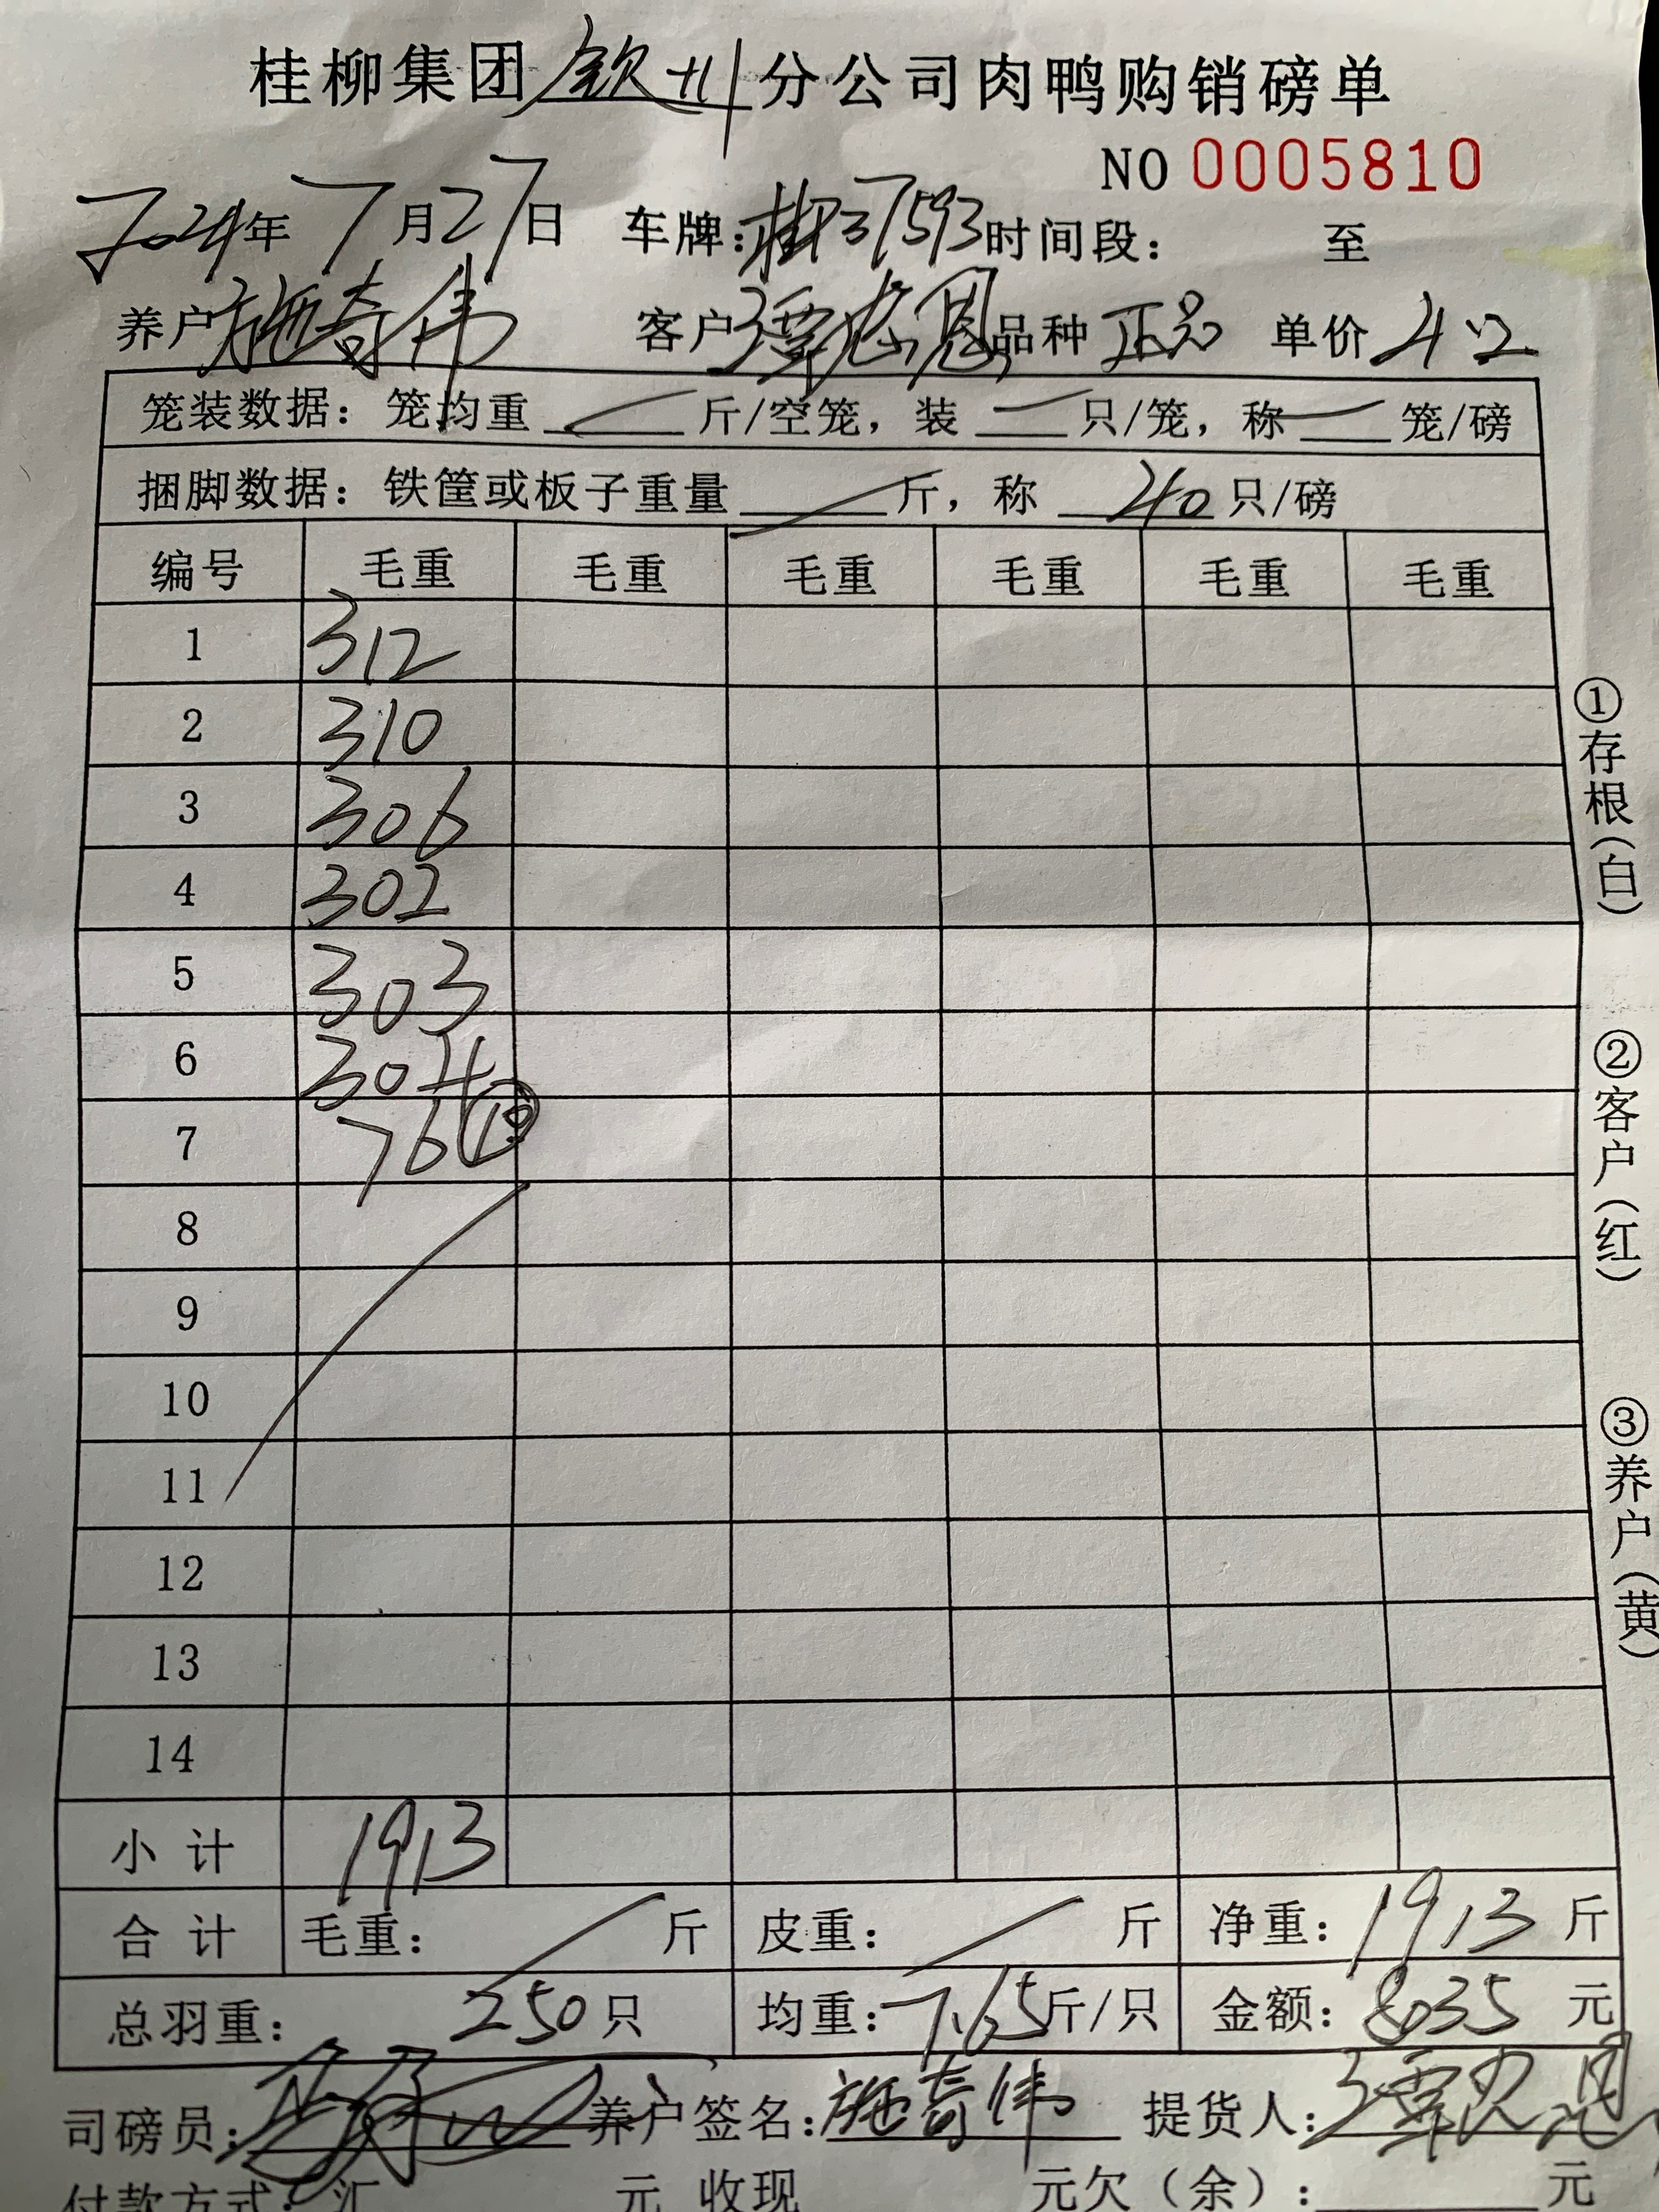 桂柳集团钦州分公司肉鸭购销磅单
NO 0005810
2024年7月27日 车牌:桂P37593时间段: 至
养户施奇伟 客户谭忠恩品种正品 单价4.2
笼装数据: 笼均重 斤/空笼, 装 只/笼, 称 笼/磅
捆脚数据: 铁筐或板子重量 斤, 称 40只/磅
编号 毛重 毛重 毛重 毛重 毛重 毛重
1 312
2 310
3 306
4 302
5 303
6 304
7 76 ⑩
8
9
10
11
12
13
14
小计 1913
合计 毛重: 斤 皮重: 斤 净重: 1913斤
总羽重: 250只 均重: 7.65斤/只 金额: 8035元
司磅员: 养户签名:施奇伟 提货人:谭忠恩
付款方式: 汇 元 收现 元欠（余）: 元
①存根（白）
②客户（红）
③养户（黄）